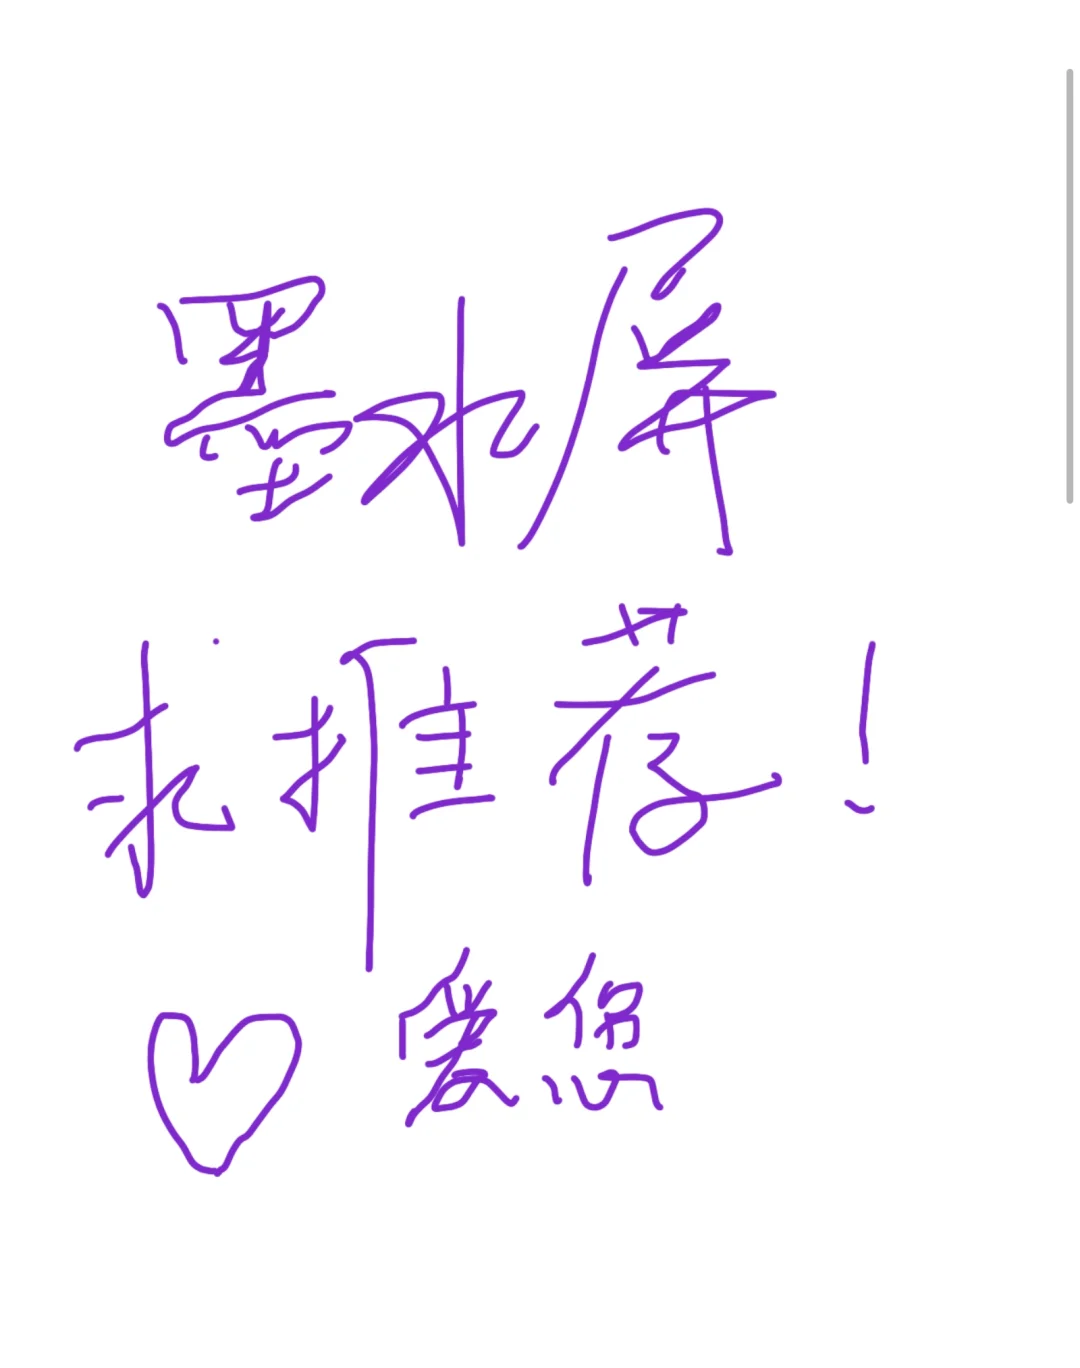 墨水屏
求推荐！
爱您